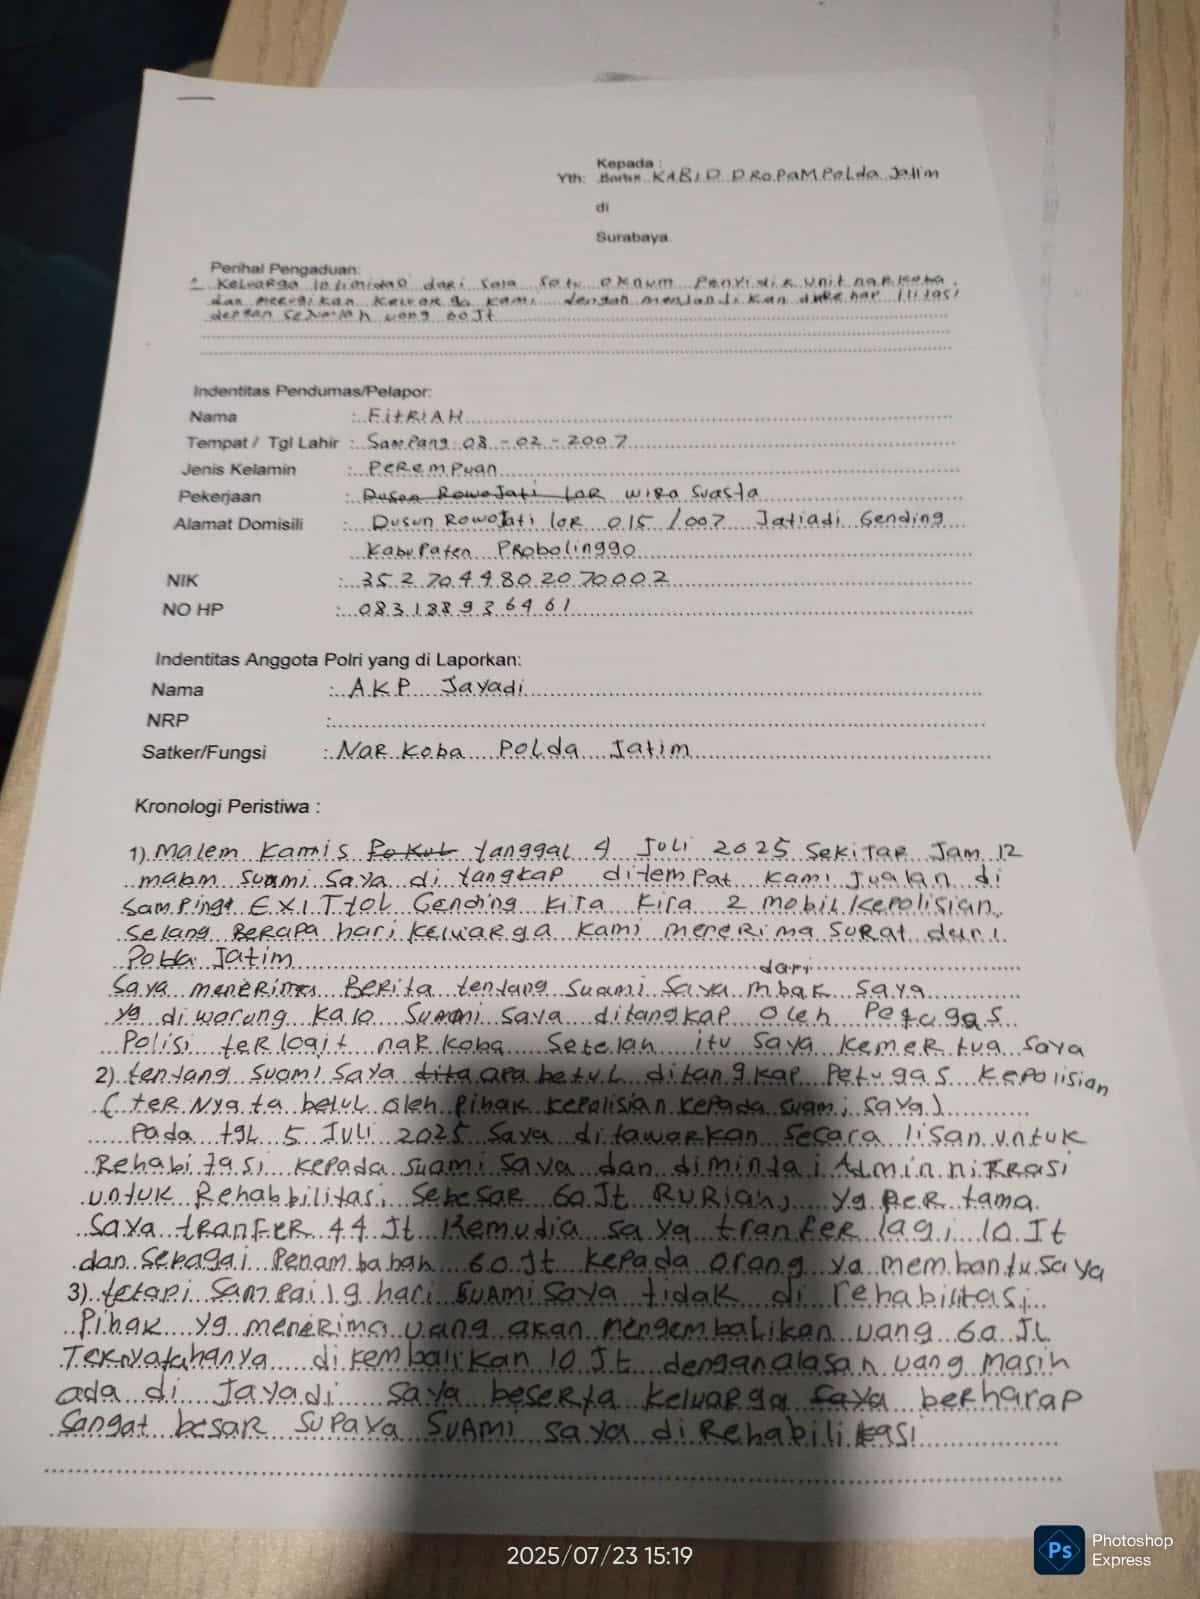 Kepada :
Yth: KABID PROPAM Polda Jatim
di
Surabaya.
Perihal Pengaduan:
Keluarga intimidao dari sala satu oknum Penyidik unit narkoba
dan merugikan keluarga kami dengan menjandikan direhap ilitasi
dengan sejumlah uang 60 Jt
Indentitas Pendumas/Pelapor:
Nama : FitRIAH
Tempat / Tgl Lahir : Sampang 08 - 02 - 2007
Jenis Kelamin : PeRemPuan
Pekerjaan : Dusun RowoJati loR wira suasta
Alamat Domisili : Dusun RowoJati loR 015 /007 Jatiadi Gending
Kabupaten PRobolinggo
NIK : 3527044802070002
NO HP : 083188936461
Indentitas Anggota Polri yang di Laporkan:
Nama : AKP Jayadi
NRP :
Satker/Fungsi : NaRKoba Polda Jatim
Kronologi Peristiwa :
1) Malem Kamis Pokul tanggal 4 Juli 2025 SekiTAR Jam 12
malam suami saya di tangkap ditempat kami jualan di
sampingt EXITtol Gending kira kira 2 mobil kepolisian
selang BeRAPA hari keluarga kami menerima suRat dari
Polda Jatim
dari
Saya menerima BeRita tentang suami saya mbak saya
yg diwarung kalo suami saya ditangkap oleh Petugas
Polisi terlogit narkoba Setelah itu saya kemertua saya
2) tentang suami saya apa betul ditangkap Petugas kepolisian
(teRNyata betul oleh Pihak kepolisian kepada suami saya)
Pada tgl 5 JULI 2025 saya ditawarkan secara lisan untuk
Rehabitasi kepada suami saya dan dimintai AdminnitRasi
untuk Rehabbilitasi SebesaR 60 Jt RuRian, yg peR tama
saya tRanfeR 44 Jt Kemudia saya tranfeR lagi 10 Jt
dan sebagai Penambahan 60 Jt kepada orang ya membantu saya
3) tetapi sampai 19 hari suami saya tidak di rehabilitasi
Pihak yg menerima uang akan mengembalikan uang 60 Jt
Teknyatahanya dikembalikan 10 Jt dengan alasan uang masih
ada di Jayadi saya beserta keluarga saya berharap
sangat besar supaya suami saya diRehabilitasi
2025/07/23 15:19
Ps
Photoshop
Express